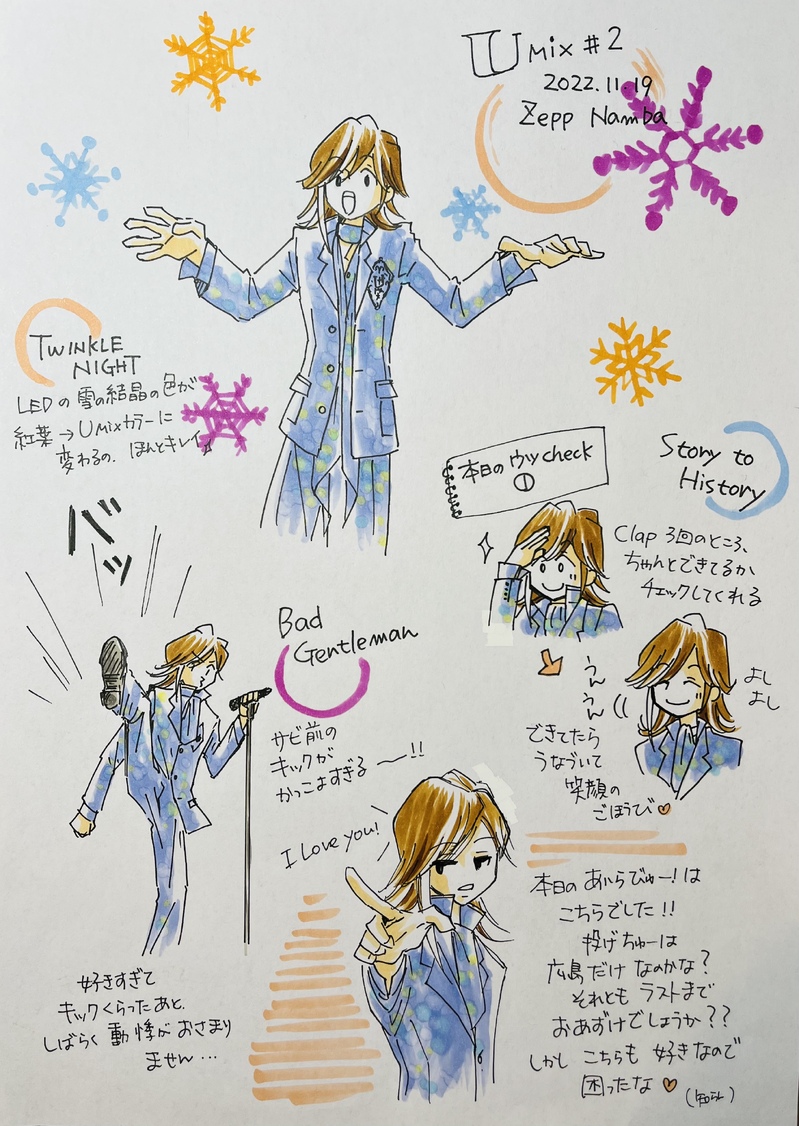 U mix #2
2022.11.19
Zepp Namba
TWINKLE
NIGHT
LEDの雪の結晶の色が
紅葉→Umixカラーに
変わるの。ほんとキレイ♪
本日のウツcheck
①
Story to
History
Clap 3回のところ、
ちゃんとできてるか
チェックしてくれる
バッ
Bad
Gentleman
サビ前の
キックが
かっこよすぎる〜!!
うんうん
よし
よし
できてたら
うなづいて
笑顔の
ごほうび♡
I Love you!
本日のあいらびゅー!は
こちらでした!!
投げちゅーは
広島だけなのかな?
それともラストまで
おあずけでしょうか??
しかしこちらも好きなので
困ったな♡
(知らん)
好きすぎて
キックくらったあと、
しばらく動悸がおさまり
ません…